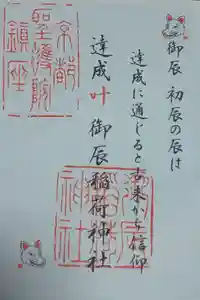 御辰 初辰の辰は
達成に通じると古来から信仰
達成 叶 御辰稲荷神社
京都
聖護院
鎮座
御辰稲荷神社